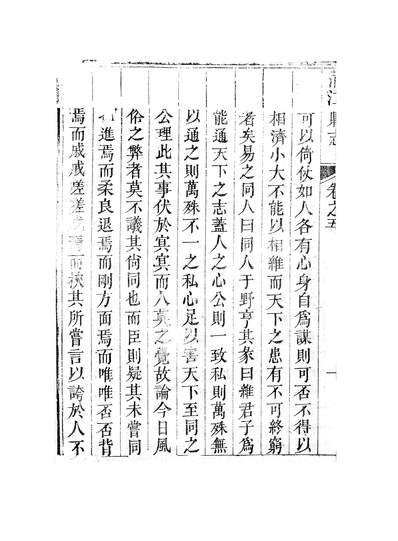 江縣志 卷之五 一
可以倚仗如人各有心身自爲謀則可否不得以
相濟小大不能以相維而天下之患有不可終窮
者矣易之同人曰同人于野亨其彖曰維君子爲
能通天下之志蓋人之心公則一致私則萬殊無
以通之則萬殊不一之私心足以害天下至同之
公理此其事伏於冥冥而人莫之覺故論今日風
俗之弊者莫不議其尚同也而臣則疑其未嘗同
進焉而柔良退焉而剛方面焉而唯唯否否背
焉而戚戚嗟嗟焉而挾其所嘗言以誇於人不